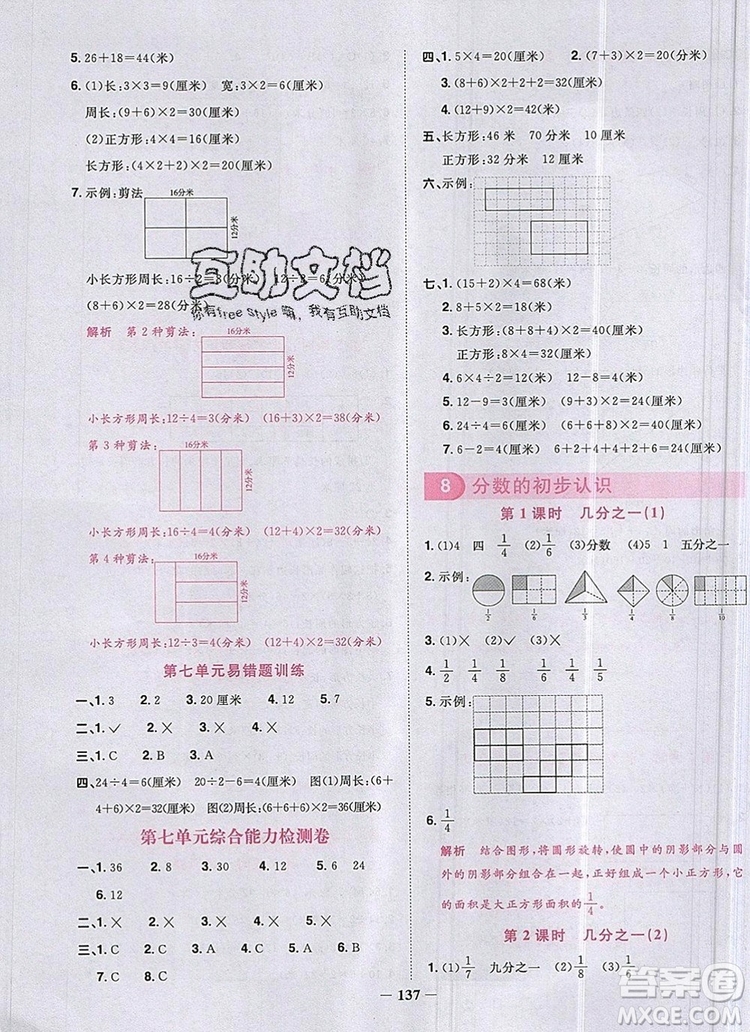 5. 26+18=44(米)
6. (1)长:3×3=9(厘米) 宽:3×2=6(厘米)
周长:(9+6)×2=30(厘米)
(2)正方形:4×4=16(厘米)
长方形:(4×2+2)×2=20(厘米)
7. 示例:剪法
16分米
12分米
小长方形周长:16÷2=8(分米) 12÷2=6(分米)
(8+6)×2=28(分米)
互助文档
你有free Style 嘛,我有互助文档
解析 第2种剪法:
16分米
12分米
小长方形周长:12÷4=3(分米) (16+3)×2=38(分米)
第3种剪法:
16分米
12分米
小长方形周长:16÷4=4(分米) (12+4)×2=32(分米)
第4种剪法:
16分米
12分米
小长方形周长:12÷3=4(分米) (12+4)×2=32(分米)
第七单元易错题训练
一、1. 3 2. 5 3. 20厘米 4. 12 5. 7
二、1. ✓ 2. × 3. × 4. ×
三、1. C 2. B 3. A
四、24÷4=6(厘米) 20÷2-6=4(厘米) 图(1)周长:(6+
4+6)×2=32(厘米) 图(2)周长:(6+6+6)×2=36(厘米)
第七单元综合能力检测卷
一、1. 36 2. 8 3. 30 8 4. 6 5. 20 24
6. 12
二、1. × 2. × 3. × 4. ×
三、1. C 2. C 3. B 4. A 5. C
四、1. 5×4=20(厘米) 2. (7+3)×2=20(分米)
3. (8+6+2)×2=32(厘米)
4. (12+9)×2=42(厘米)
五、长方形:46米 70分米 10厘米
正方形:32分米 20米 12厘米
六、示例:
七、1. (15×2+4)×2=68(米)
2. 8+5×2=18(米)
3. 长方形:(8+8+4)×2=40(厘米)
正方形:8×4=32(厘米)
4. 6×4÷2=12(米) 12-8=4(米)
5. 12-9=3(米) (12+3)×2=30(米)
6. 24÷4=6(厘米) (6×2+6)×2=36(厘米)
7. 6-2=4(米) 6+4+6+4+2+2=24(米)
8 分数的初步认识
第1课时 几分之一(1)
1. (1)4 四 1/4 (2)1/6 (3)分数 (4)5 1 五分之一
2. 示例:
1/2 1/6 1/3 1/4 1/8 1/10
3. (1)○ (2)✓ (3)○
4. 1/2 1/4 1/4 1/2
5. 示例:
6. 1/4
解析 结合图形,将图形旋转,使圆中的阴影部分与圆
外的阴影部分组合在一起,正好组成一个小正方形,
它的面积是大正方形面积的1/4。
第2课时 几分之一(2)
1. (1)1/7 九分之一 (2)1/8 (3)1/6
137
答案圈
MXQE.COM